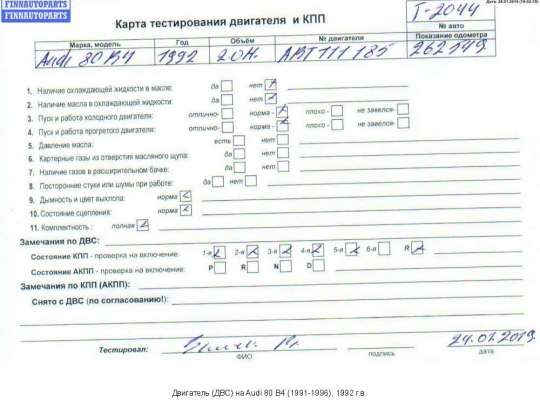 FINNAUTOPARTS
FINNAUTOPARTS
FINNAUTOPARTS
Карта тестирования двигателя и КПП
Т-2044
№ авто
Марка, модель Год Объём № двигателя Показание одометра
Audi 80 B4 1992 2.0И. ABT 111 185 262549
1. Наличие охлаждающей жидкости в масле: да нет
2. Наличие масла в охлаждающей жидкости: да нет
3. Пуск и работа холодного двигателя: отлично- норма - плохо - не завелся-
4. Пуск и работа прогретого двигателя: отлично- норма - плохо - не завелся-
5. Давление масла: есть нет
6. Картерные газы из отверстия масляного щупа: да нет
7. Наличие газов в расширительном бачке: да нет
8. Посторонние стуки или шумы при работе: да нет
9. Дымность и цвет выхлопа: норма
10. Состояние сцепления: норма
11. Комплектность : полная
Замечания по ДВС:
Состояние КПП - проверка на включение: 1-я 2-я 3-я 4-я 5-я 6-я R
Состояние АКПП - проверка на включение: P R N D
Замечания по КПП (АКПП):
Снято с ДВС (по согласованию!):
Тестировал: 24.07.2019
ФИО подпись дата
Двигатель (ДВС) на Audi 80 B4 (1991-1996), 1992 г.в.